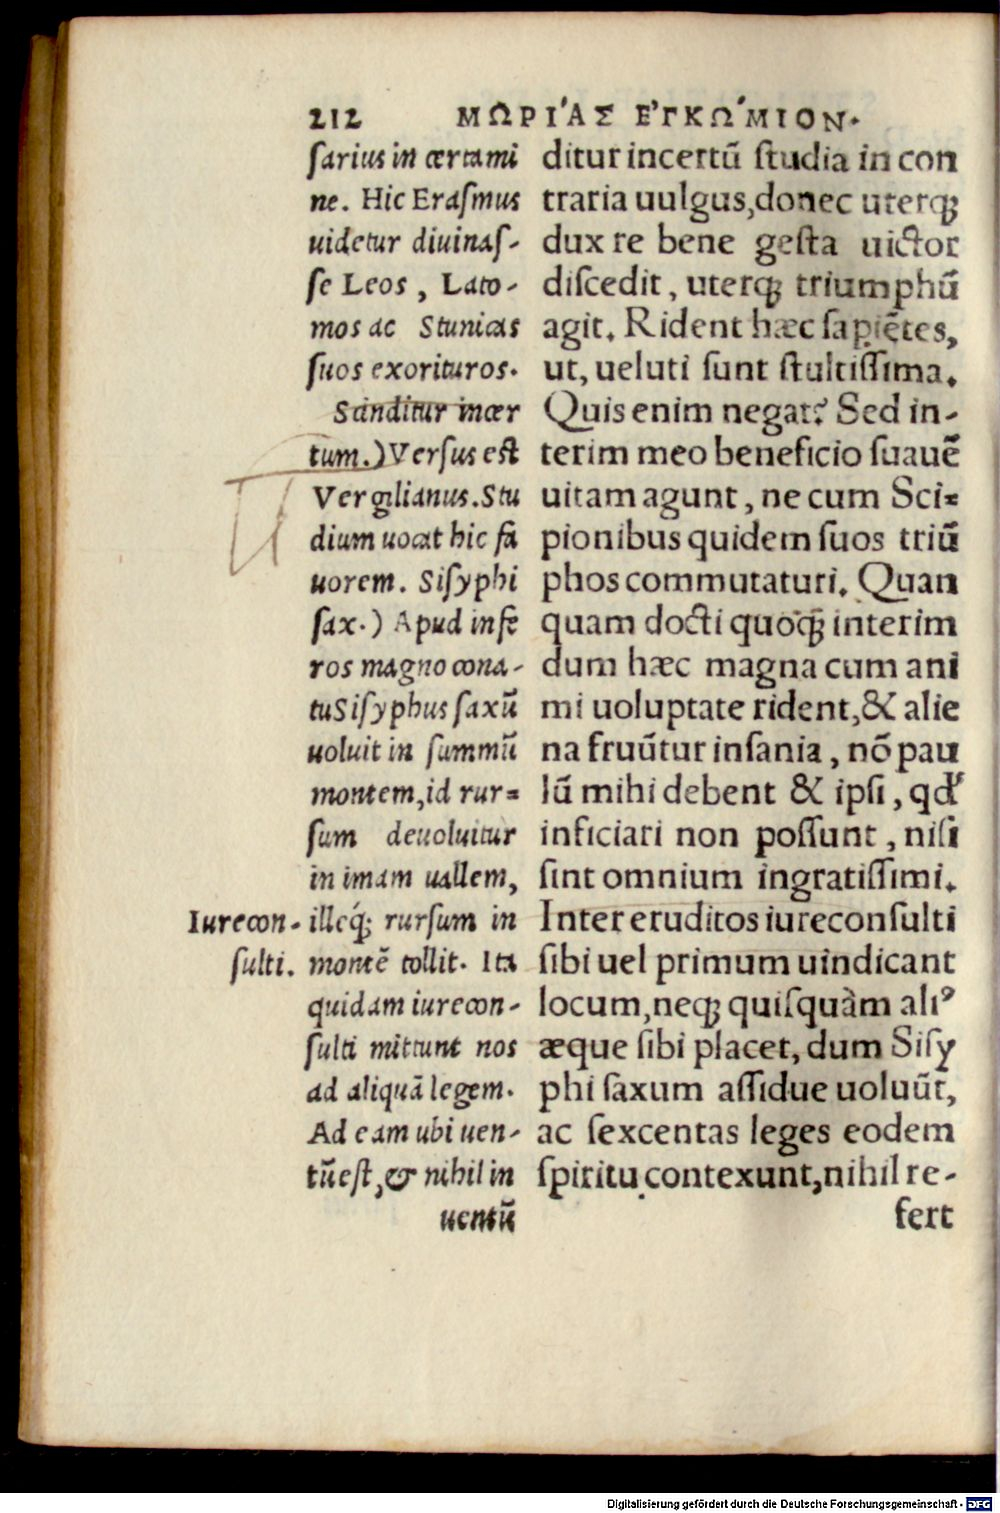 212 ΜΩΡΙ´ΑΣ ΕʹΓΚΩ´ΜΙΟΝ.
ſarius in certami
ne. Hic Eraſmus
uidetur diuinaſ-
ſe Leos, Lato-
mos ac Stunicas
ſuos exorituros.
Scinditur incer
tum.) Verſus est
Vergilianus. Stu
dium uocat hic fa
uorem. Siſyphi
ſax.) Apud infe
ros magno cona-
tu Siſyphus ſaxū
uoluit in ſummū
montem, id rur=
ſum deuoluitur
in imam uallem,
illeq́; rurſum in
montē tollit. Ita
quidam iurecon-
ſulti mittunt nos
ad aliquā legem.
Ad eam ubi uen-
tū eſt, & nihil in
uentū
Iurecon-
ſulti.
ditur incertū ſtudia in con
traria uulgus, donec uterq;
dux re bene geſta uictor
diſcedit, uterq; triumphū
agit. Rident hæc ſapiētes,
ut, ueluti ſunt ſtultiſſima.
Quis enim negat? Sed in-
terim meo beneficio ſuauē
uitam agunt, ne cum Sci=
pionibus quidem ſuos triū
phos commutaturi. Quan
quam docti quoq; interim
dum hæc magna cum ani
mi uoluptate rident, & alie
na fruūtur inſania, nō pau
lū mihi debent & ipſi, qđ
inficiari non poſſunt, niſi
ſint omnium ingratiſſimi.
Inter eruditos iureconſulti
ſibi uel primum uindicant
locum, neq; quiſquàm aliꝰ
æque ſibi placet, dum Siſy
phi ſaxum aſſidue uoluūt,
ac ſexcentas leges eodem
ſpiritu contexunt, nihil re-
fert
Digitalisierung gefördert durch die Deutsche Forschungsgemeinschaft - DFG